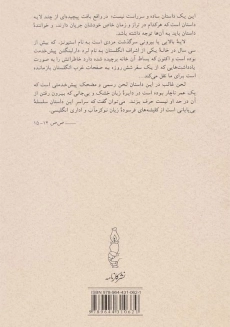 این یک داستان ساده و سرراست نیست. در واقع بافت پیچیده‌ای از چند لایه
داستان است که هرکدام در تراز و زمان خاص خودشان جریان دارند، و خوانندهٔ
داستان باید به آن‌ها توجه داشته باشد.
لایهٔ بالایی یا بیرونی سرگذشت مردی است به نام استیونز، که بیش از
سی سال در خانهٔ یکی از اشراف انگلستان به نام لرد دارلینگتن پیش‌خدمت
بوده است و اکنون که بساط آن خانه برچیده شده دارد خاطراتش را به صورت
یادداشت‌هایی که از یک سفر شش روزه به صفحات غرب انگلستان بازمانده
است برای ما نقل می‌کند.
لحن غالب در این داستان لحن رسمی و مضحک پیش‌خدمتی است که
یک عمر ناچار بوده است در دایرهٔ زبان خشک و بی‌جانی که بیرون رفتن از
آن در حد او نیست حرف بزند. می‌توان گفت که سراسر این داستان سلسلهٔ
بی‌پایانی است از کلیشه‌های فرسودهٔ زبان بوکرآب و اداری انگلیسی.
— ص‌ص ۱۴-۱۵
نشر کارنامه
ISBN 978-964-431-062-1
9 789644 310621